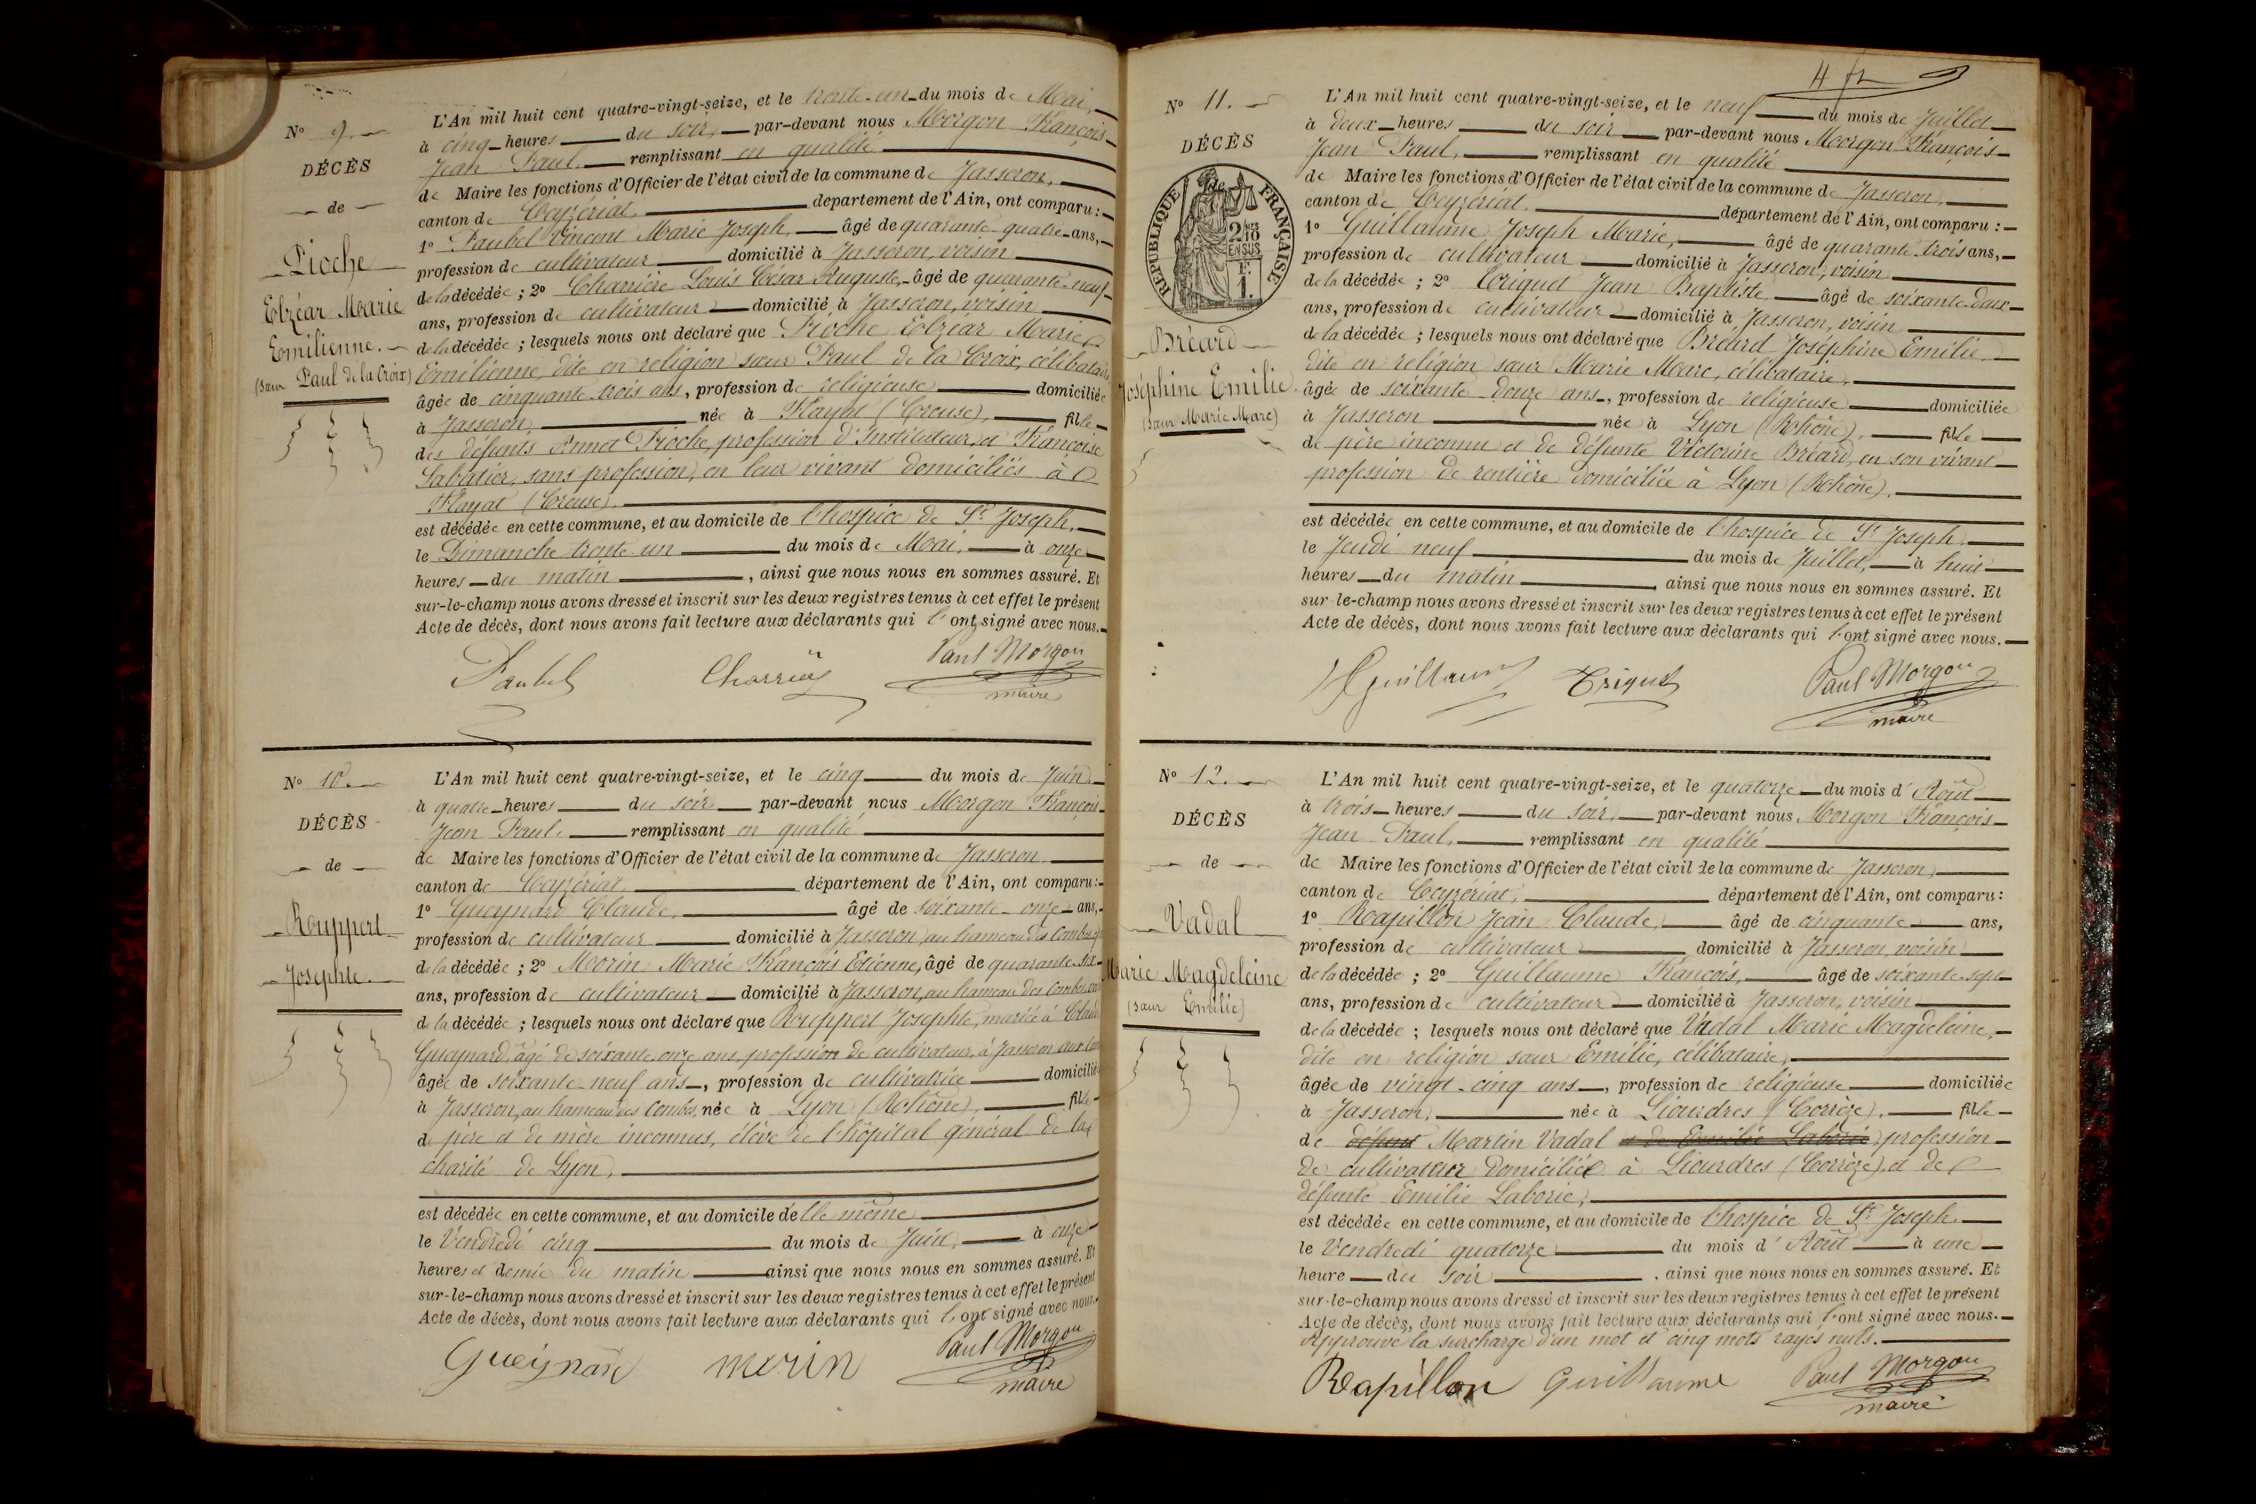 N° 9.
DÉCÈS
de
Pioche
Elzéar Marie
Emilienne.
(Sœur Paul de la Croix)
L'An mil huit cent quatre-vingt-seize, et le trente-un du mois de Mai,
à cinq heures du soir, par-devant nous Morgon François
Jean Paul, remplissant en qualité
de Maire les fonctions d'Officier de l'état civil de la commune de Jasseron,
canton de Ceyzériat, département de l'Ain, ont comparu :
1° Paubel Vincent Marie Joseph, âgé de quarante-quatre ans,
profession de cultivateur domicilié à Jasseron, voisin
de la décédée ; 2° Charrière Louis César Auguste, âgé de quarante-neuf
ans, profession de cultivateur domicilié à Jasseron, voisin
de la décédée ; lesquels nous ont déclaré que Pioche Elzéar Marie
Emilienne, dite en religion sœur Paul de la Croix, célibataire
âgée de cinquante-trois ans, profession de religieuse domiciliée
à Jasseron, née à Flayat (Creuse), fille
des défunts Annet Pioche, profession d'Instituteur, et Françoise
Sabatier, sans profession, en leur vivant domiciliés à
Flayat (Creuse),
est décédée en cette commune, et au domicile de l'hospice de St Joseph,
le Dimanche trente-un du mois de Mai, à onze
heures du matin, ainsi que nous nous en sommes assuré. Et
sur-le-champ nous avons dressé et inscrit sur les deux registres tenus à cet effet le présent
Acte de décès, dont nous avons fait lecture aux déclarants qui l'ont signé avec nous.
Paubel Charrière Paul Morgon
maire
N° 10.
DÉCÈS
de
Rouppert
Josephte.
L'An mil huit cent quatre-vingt-seize, et le cinq du mois de Juin
à quatre heures du soir par-devant nous Morgon François
Jean Paul, remplissant en qualité
de Maire les fonctions d'Officier de l'état civil de la commune de Jasseron
canton de Ceyzériat, département de l'Ain, ont comparu :
1° Gueynard Claude, âgé de soixante-onze ans,
profession de cultivateur domicilié à Jasseron, au hameau des Combes
de la décédée ; 2° Morin Marie François Etienne, âgé de quarante-six
ans, profession de cultivateur domicilié à Jasseron, au hameau des Combes
de la décédée ; lesquels nous ont déclaré que Rouppert Josephte, mariée à Claude
Gueynard, âgé de soixante-onze ans, profession de cultivateur, à Jasseron
âgée de soixante-neuf ans, profession de cultivatrice domiciliée
à Jasseron, au hameau des Combes, née à Lyon (Rhône), fille
de père et de mère inconnus, élève de l'hôpital général de la
charité de Lyon,
est décédée en cette commune, et au domicile d'elle même
le Vendredi cinq du mois de Juin, à onze
heures et demie du matin ainsi que nous nous en sommes assuré. Et
sur-le-champ nous avons dressé et inscrit sur les deux registres tenus à cet effet le présent
Acte de décès, dont nous avons fait lecture aux déclarants qui l'ont signé avec nous.
Gueynard morin Paul Morgon
maire
4
N° 11.
DÉCÈS
de
RÉPUBLIQUE FRANÇAISE
2/10 EN SUS
Bréard
Joséphine Emilie.
(Sœur Marie Marc)
L'An mil huit cent quatre-vingt-seize, et le neuf du mois de Juillet
à deux heures du soir par-devant nous Morgon François
Jean Paul, remplissant en qualité
de Maire les fonctions d'Officier de l'état civil de la commune de Jasseron,
canton de Ceyzériat, département de l'Ain, ont comparu :
1° Guillaume Joseph Marie, âgé de quarante-trois ans,
profession de cultivateur domicilié à Jasseron, voisin
de la décédée ; 2° Triquet Jean Baptiste, âgé de soixante-deux
ans, profession de cultivateur domicilié à Jasseron, voisin
de la décédée ; lesquels nous ont déclaré que Bréard Joséphine Emilie
dite en religion sœur Marie Marc, célibataire,
âgée de soixante-douze ans, profession de religieuse domiciliée
à Jasseron née à Lyon (Rhône), fille
de père inconnu et de défunte Victorine Bréard, en son vivant
profession de rentière domiciliée à Lyon (Rhône),
est décédée en cette commune, et au domicile de l'hospice de St Joseph,
le Jeudi neuf du mois de Juillet, à huit
heures du matin ainsi que nous nous en sommes assuré. Et
sur-le-champ nous avons dressé et inscrit sur les deux registres tenus à cet effet le présent
Acte de décès, dont nous avons fait lecture aux déclarants qui l'ont signé avec nous.
Guillaume Triquet Paul Morgon
maire
N° 12.
DÉCÈS
de
Vadal
Marie Magdeleine
(Sœur Emilie)
L'An mil huit cent quatre-vingt-seize, et le quatorze du mois d'Août
à trois heures du soir, par-devant nous Morgon François
Jean Paul, remplissant en qualité
de Maire les fonctions d'Officier de l'état civil de la commune de Jasseron,
canton de Ceyzériat, département de l'Ain, ont comparu :
1° Rapillon Jean Claude, âgé de cinquante ans,
profession de cultivateur domicilié à Jasseron, voisin
de la décédée ; 2° Guillaume François, âgé de soixante-sept
ans, profession de cultivateur domicilié à Jasseron, voisin
de la décédée ; lesquels nous ont déclaré que Vadal Marie Magdeleine,
dite en religion sœur Emilie, célibataire,
âgée de vingt-cinq ans, profession de religieuse domiciliée
à Jasseron, née à Liourdres (Corrèze), fille
de défunt Martin Vadal et de Emilie Laborie, profession
de cultivateur domicilié à Liourdres (Corrèze), et de
défunte Emilie Laborie,
est décédée en cette commune, et au domicile de l'hospice de St Joseph,
le Vendredi quatorze du mois d'Août à une
heure du soir, ainsi que nous nous en sommes assuré. Et
sur-le-champ nous avons dressé et inscrit sur les deux registres tenus à cet effet le présent
Acte de décès, dont nous avons fait lecture aux déclarants qui l'ont signé avec nous.
Approuvé la surcharge d'un mot et cinq mots rayés nuls.
Rapillon Guillaume Paul Morgon
maire